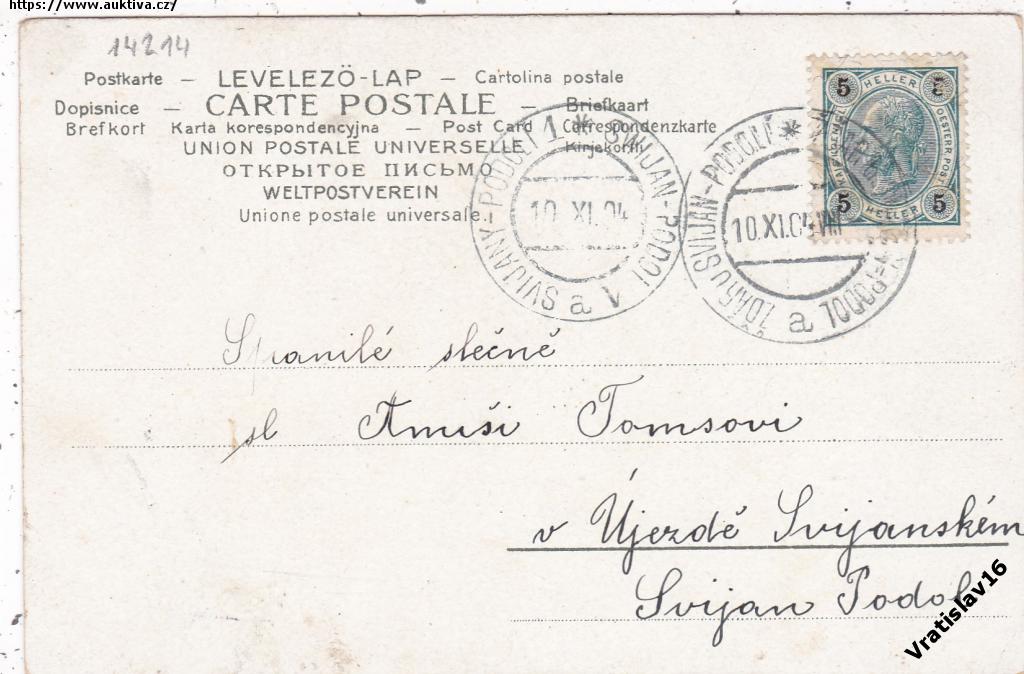 https://www.auktiva.cz/
14214
Postkarte — LEVELEZÖ-LAP — Cartolina postale
Dopisnice — CARTE POSTALE — Briefkaart
Brefkort Karta korespondencyjna — Post Card Correspondenzkarte
UNION POSTALE UNIVERSELLE Kirjekortti
ОТКРЫТОЕ ПИСЬМО
WELTPOSTVEREIN
Unione postale universale.
SVIJANY-PODOLÍ 1 * SVIJAN-PODOL
10 XI 04
a V
SVIJAN-PODOLÍ *
10.XI.04 VIII
a
5 HELLER 5
5 HELLER 5
Spanilé slečně
sl Anuši Tomsovi
v Újezdě Svijanském
Svijan Podol
Vratislav16